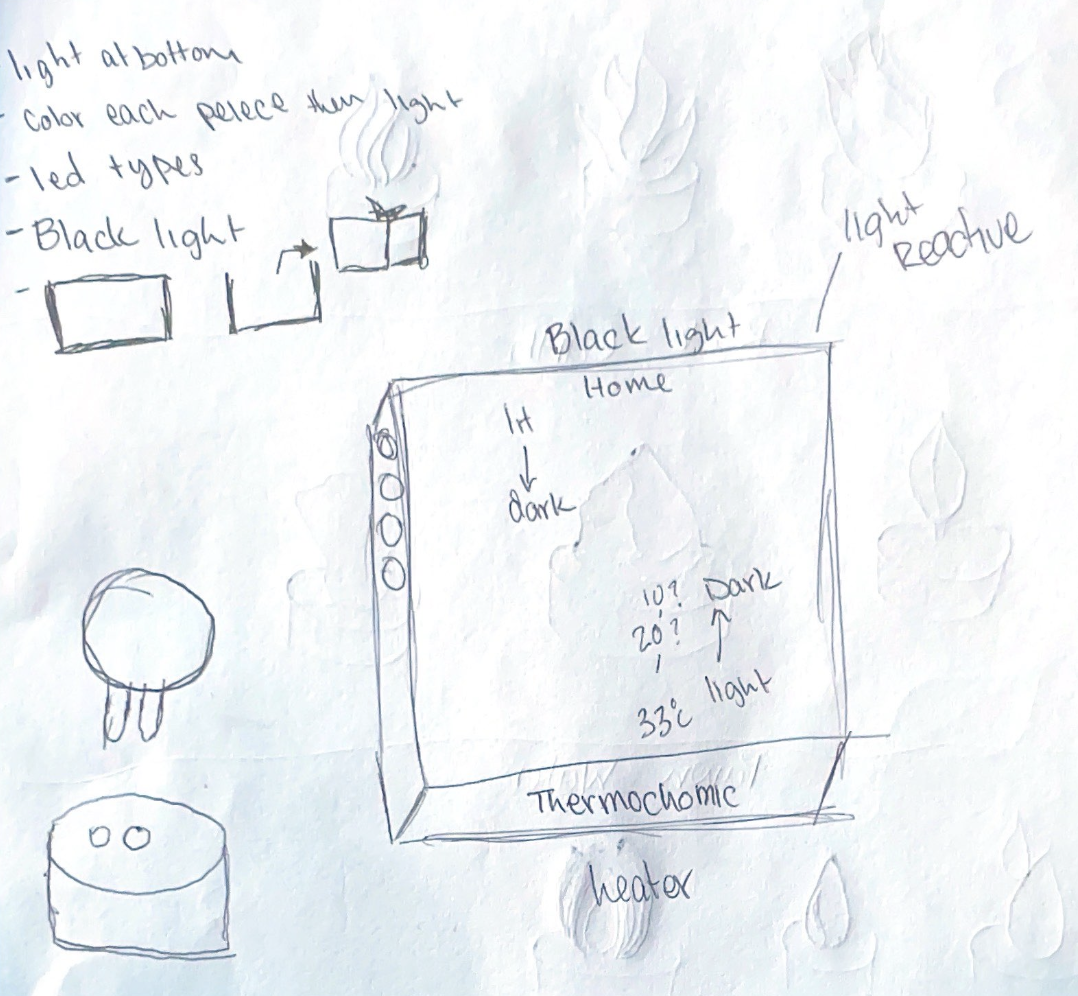 light at bottom
- Color each peiece then light
- led types
- Black light
-
light
Reactive
Black light
Home
lt
dark
10? Dark
20?
light
33°c
Thermochomic
heater